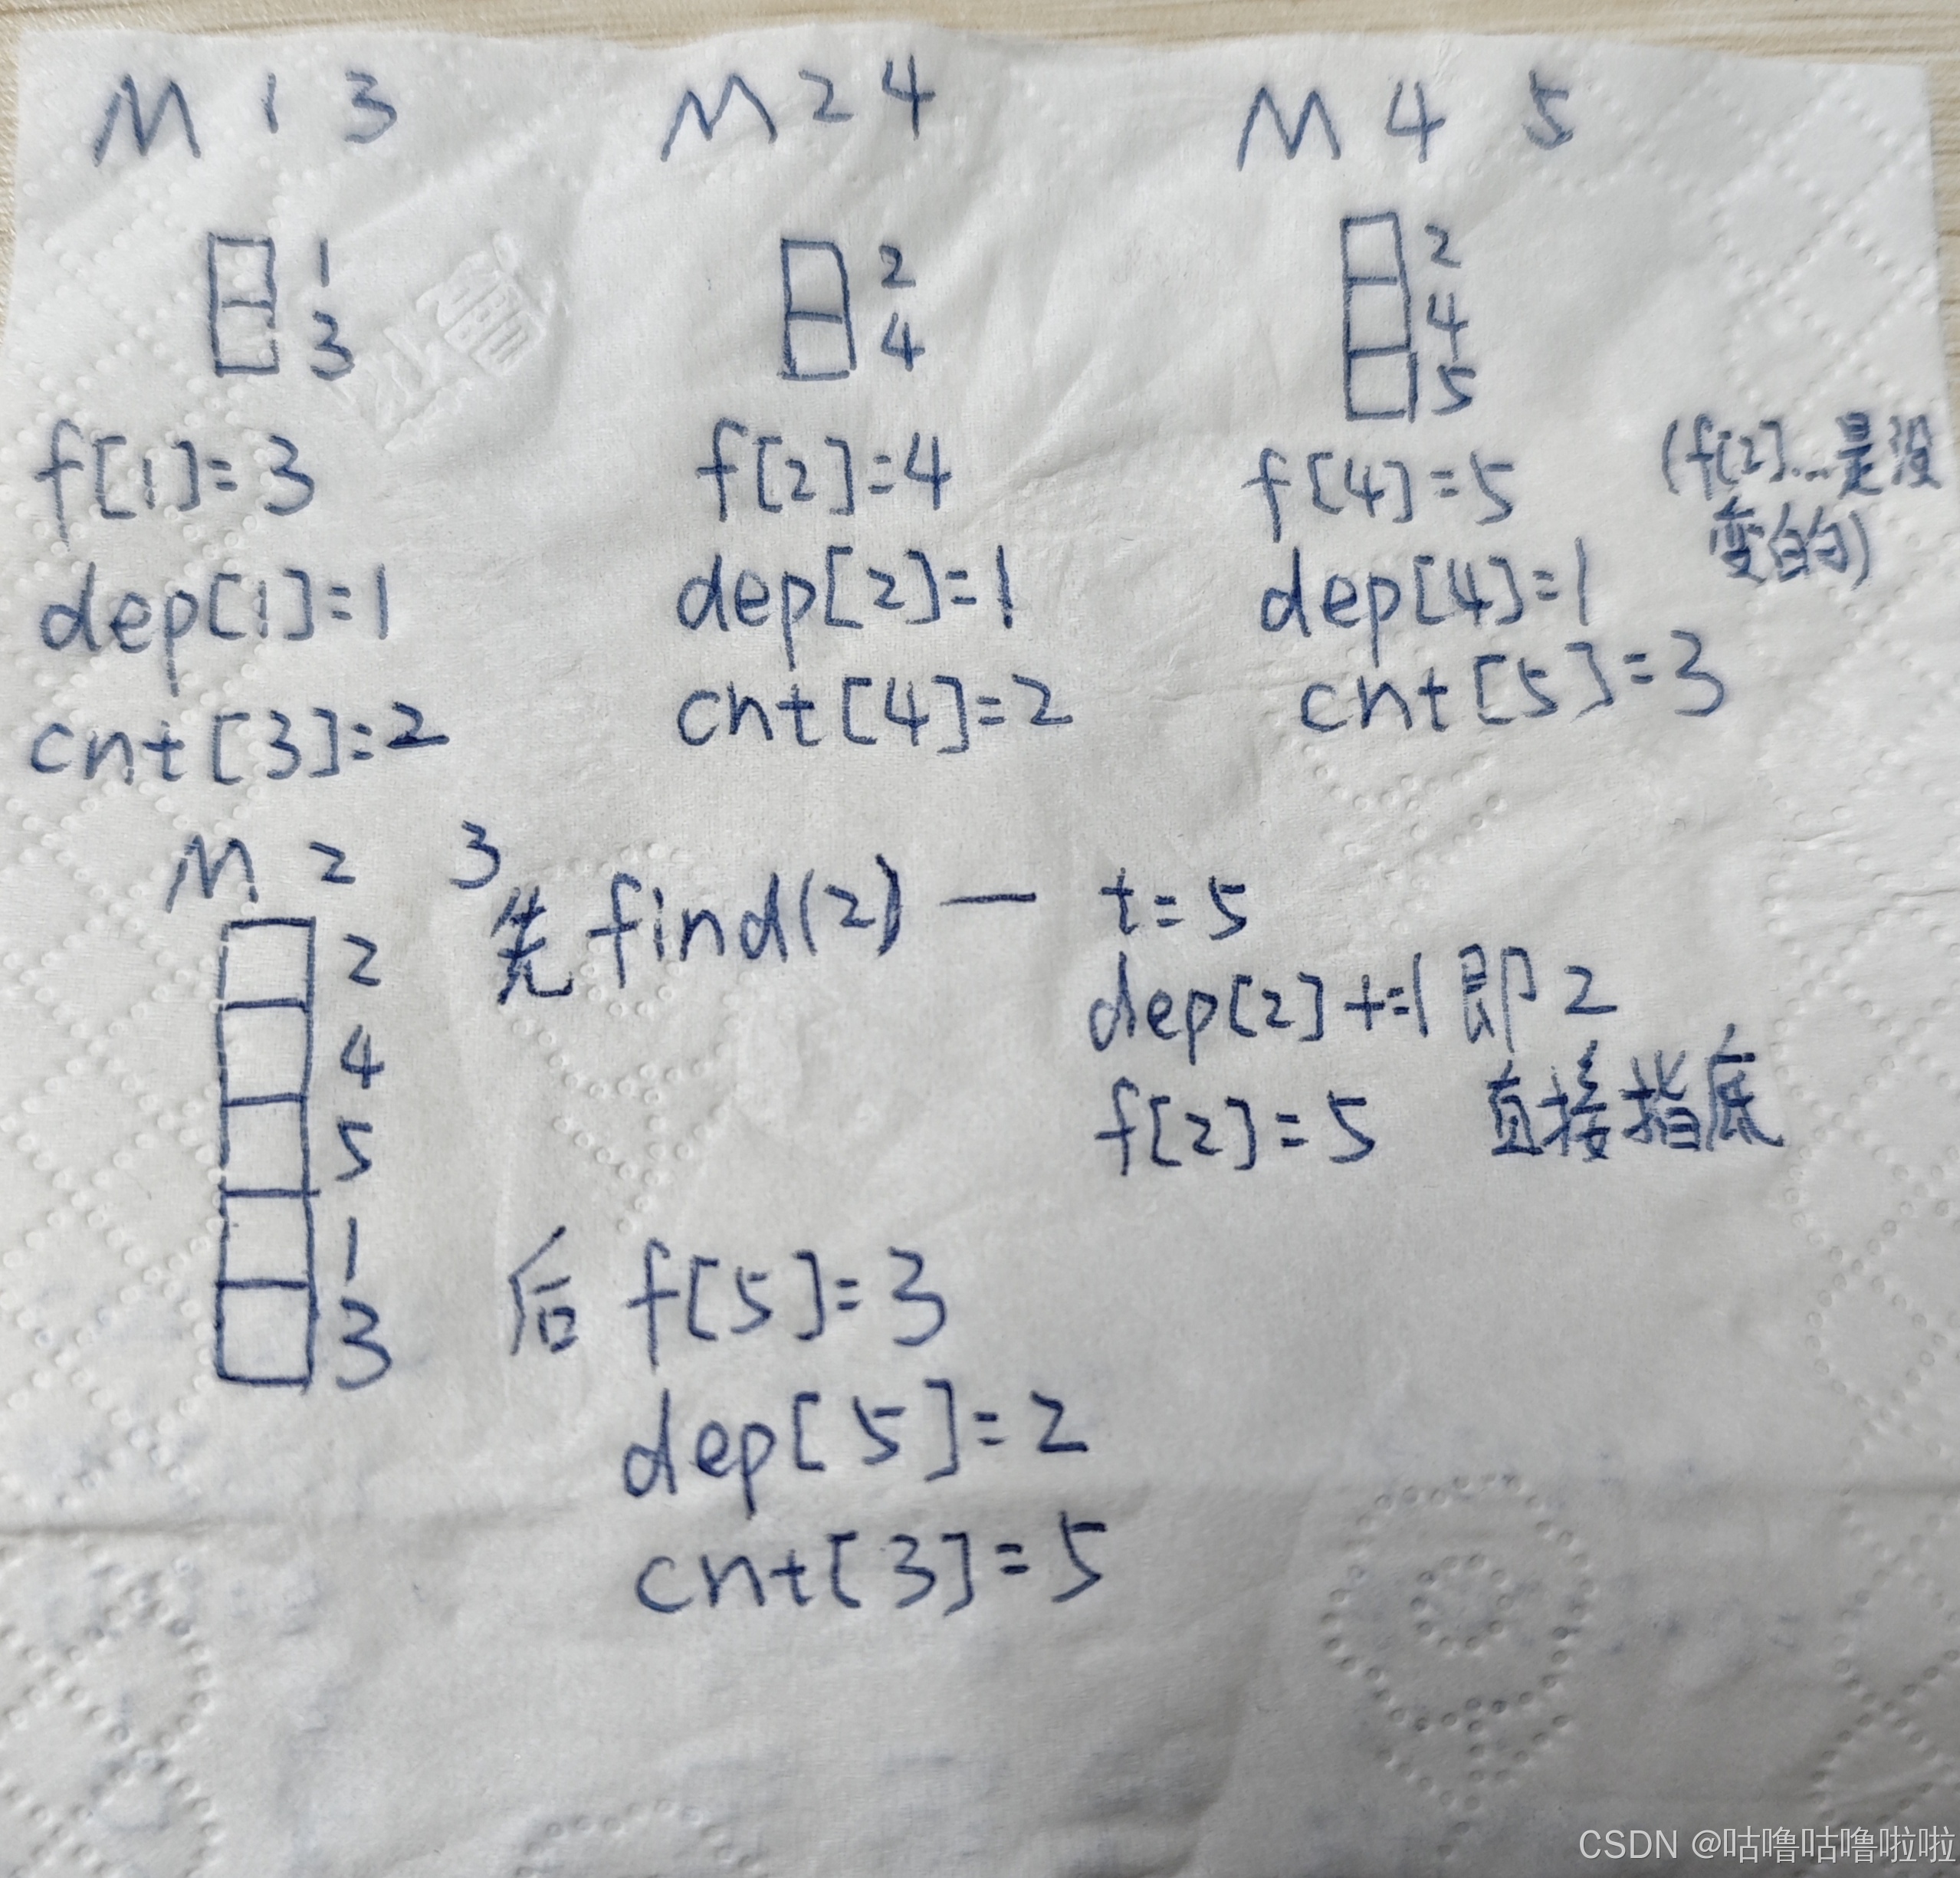 M 1 3
1
3
f[1]=3
dep[1]=1
cnt[3]=2
M 2 4
2
4
f[2]=4
dep[2]=1
cnt[4]=2
M 4 5
2
4
5
f[4]=5
(f[2]...是没
变的)
dep[4]=1
cnt[5]=3
M 2 3
2
4
5
1
3
先 find(2) — t=5
dep[2]+=1 即 2
f[2]=5 直接指底
后 f[5]=3
dep[5]=2
cnt[3]=5
CSDN @咕噜咕噜啦啦